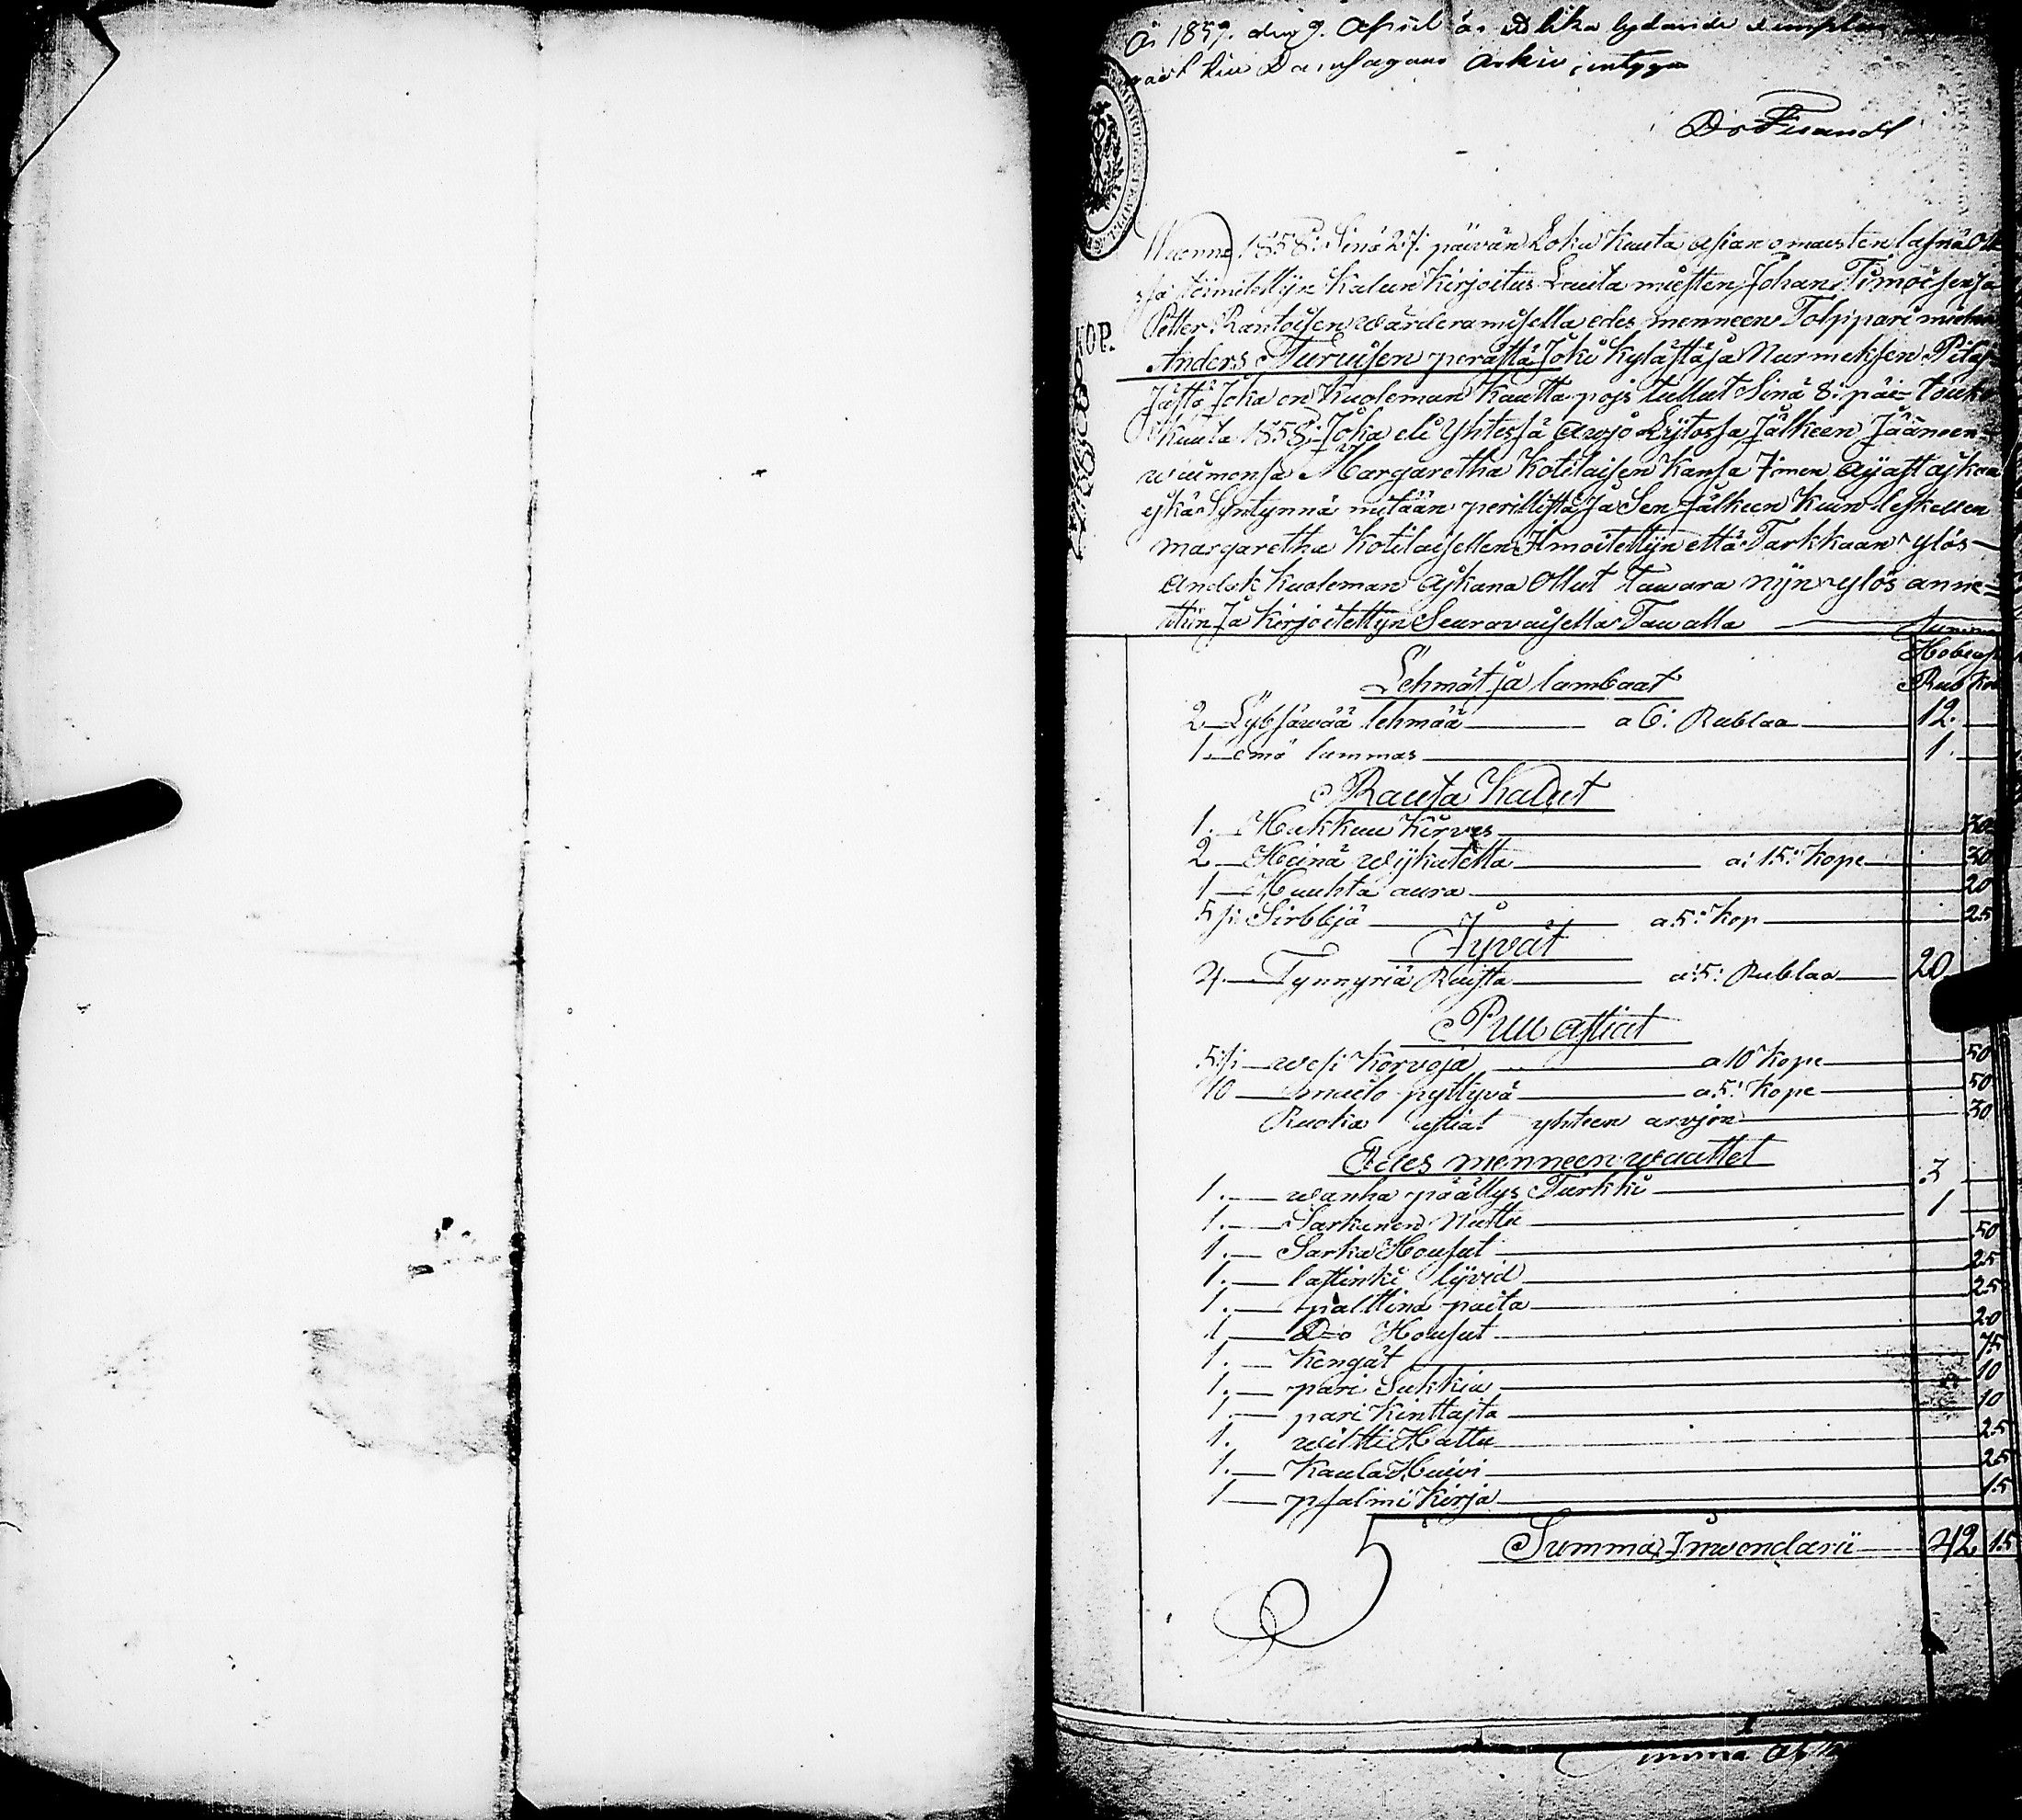 År 1859. den 9. April är lika lydande
Arkiv, intyga
KOP.
Wuonna 1858: Sinä 27: päivän Loka Kuuta asian omaisten läsnä oll
ssa toimitettijn Kalun Kirjoitus Lauta miesten Johan Timoisen ja
Petter Rantoisen wärderamisella edes menneen Tolppari miehen
Anders Turuisen perästä Joki Kylästä ja Nurmeksen Pitäj-
jästä Joka on Kuoleman Kautta pojs tullut Sinä 8: päi- touko
Kuuta 1858: Joka eli Yhtessä Awjo Lijtossa Jälkeen Jääneen-
waimonsa Margaretha Kotilaisen Kansa
ejkä Syntynnä mitään perillistä Ja Sen Jälkeen Kuin leskellen
Margaretha Kotilaisellen Ilmoitettijn että Tarkkaan ylös-
Andak Kuoleman ajkana Ollut Tawara nijn ylös anne=
ttiin Ja Kirjoitettijn Seuravaisella Tawalla
Summa
Hobias
Rub Ko
Lehmät ja lambaat
2 Lybsäwää lehmää a 6: Rublaa 12.
1. emä lammas 1.
Rauta Kalut
1. Hakkuu Kirves 30
2 Heinä wijkatetta a: 15: Kope 30
1 Huuhta aura 20
5 si Sirbbjä a 5: Kop 25
Jyvät
4. Tynnyriä Ruista a: 5: Rublaa 20
Puu astiat
5 si wesi Korvoja a 10 Kope 50
10 maito pyttyvä a 5: Kope 50
Ruoka astiat yhteen arvjon 30
Edes menneen waattet
1. wanha päällys Turkki 3
1. Sarkanen Nuttu 1
1. Sarka Housut 50
1. lastinki lijvid 25
1. palttina paita 25
1 D=o Housut 20
1. Kengät 75
1. pari Sukkia 10
1. pari Kinttajta 10
1. wiltti Hattu 25
1. Kaula Huivi 25
1 psalmi Kirja 15
Summa Inwendarii 42 15